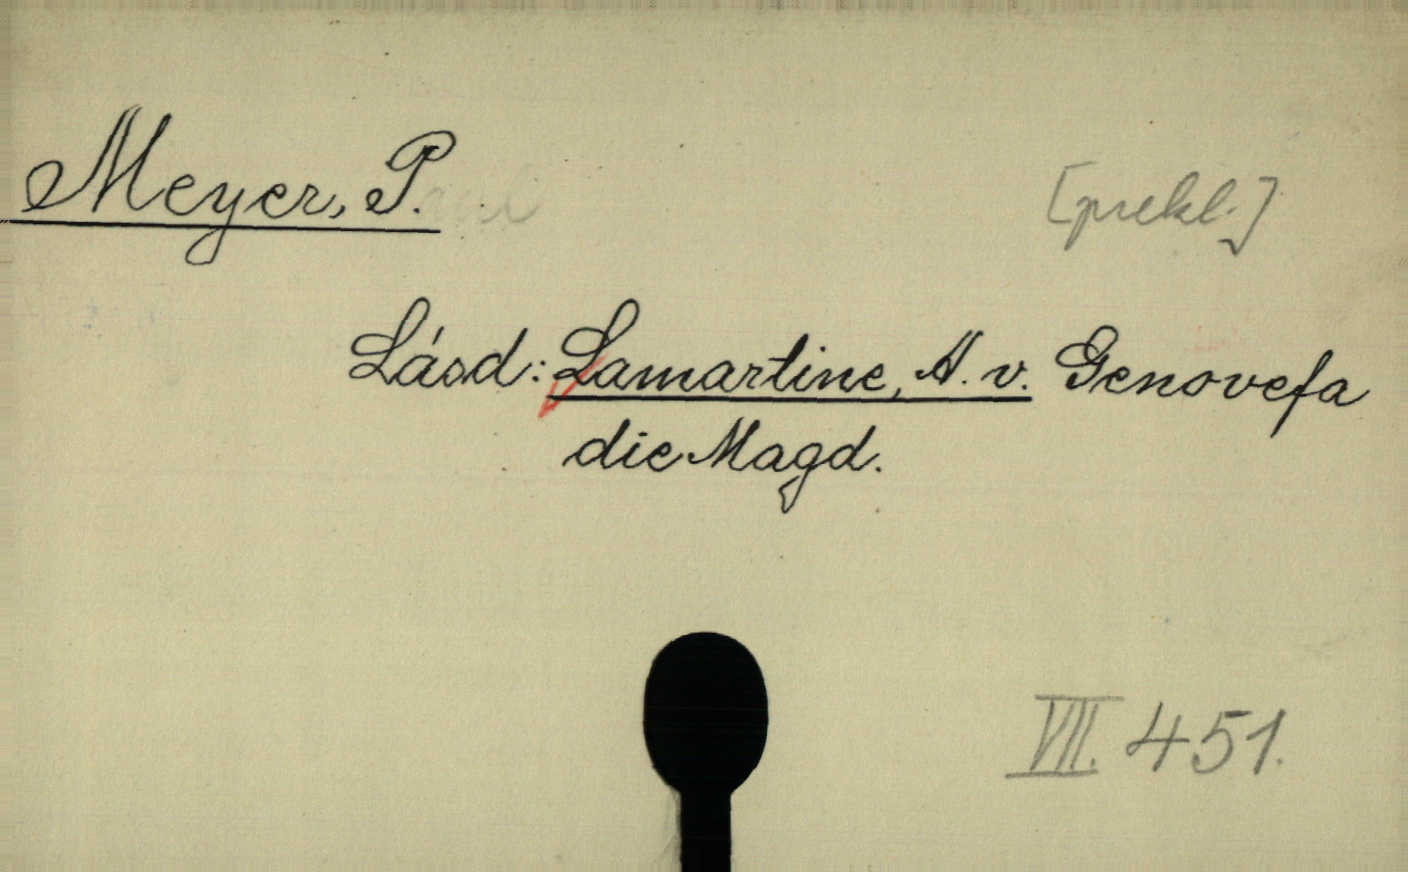 Meyer, P.
[prekl.]
Lásd: Lamartine, A. v. Genovefa
die Magd.
VII. 451.